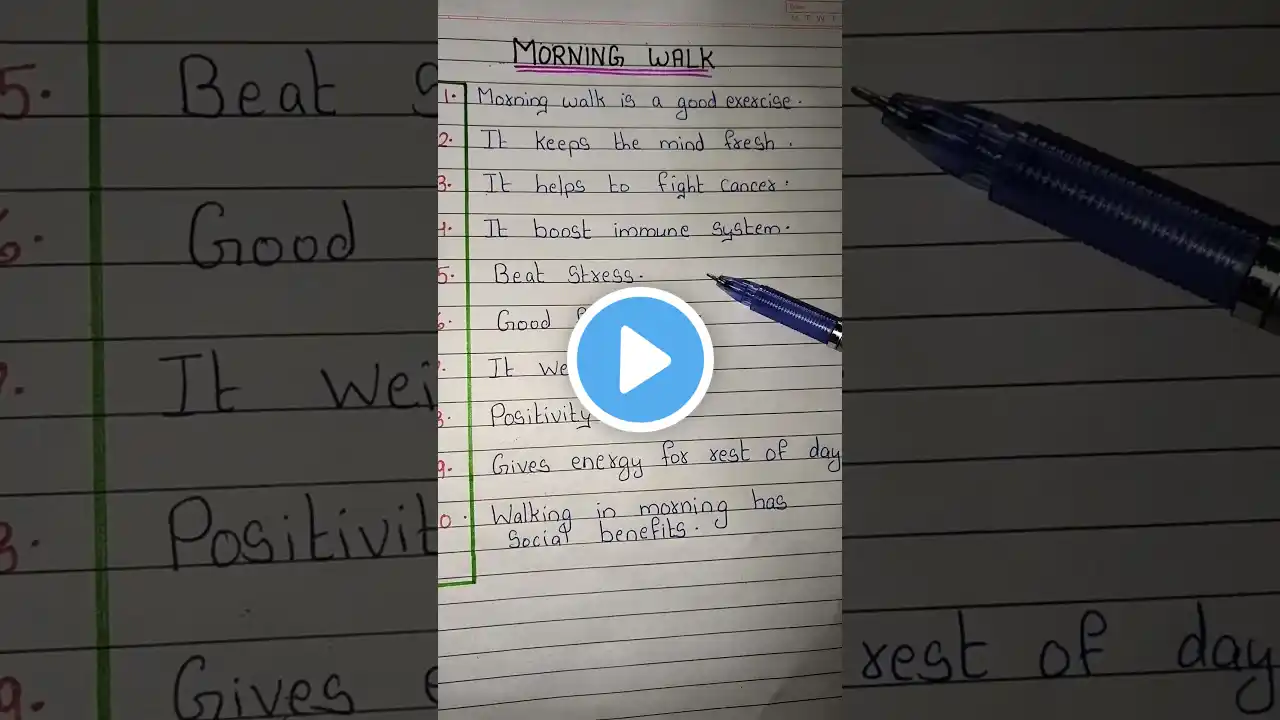 MORNING WALK
1. Morning walk is a good exercise.
2. It keeps the mind fresh.
3. It helps to fight cancer.
4. It boost immune system.
5. Beat Stress.
6. Good
7. It we
8. Positivity
9. Gives energy for rest of day
0. Walking in morning has
Social benefits.
5. Beat S
6. Good
7. It wei
8. Positivit
9. Gives e
rest of day